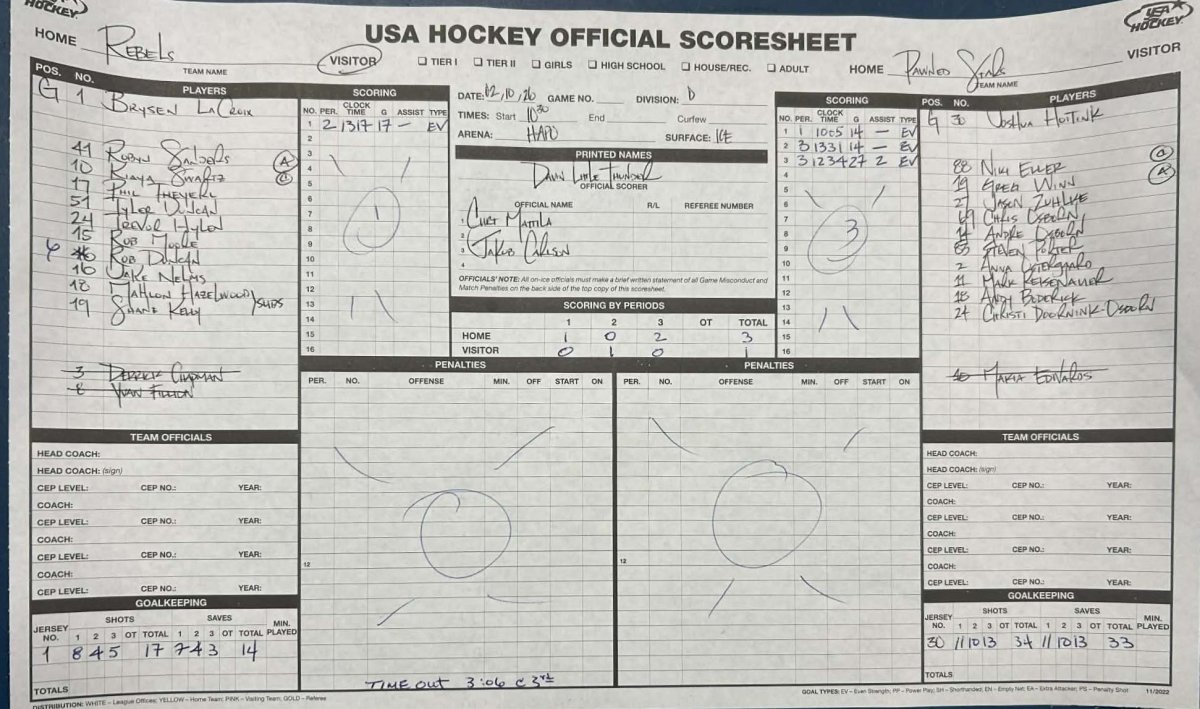 USA HOCKEY
USA HOCKEY OFFICIAL SCORESHEET
USA HOCKEY
HOME Rebels VISITOR
TEAM NAME
☐ TIER I ☐ TIER II ☐ GIRLS ☐ HIGH SCHOOL ☐ HOUSE/REC. ☐ ADULT
HOME Pawned Stars VISITOR
TEAM NAME
POS. NO. PLAYERS
G 1 BRYSEN LACROIX
41 ROBYN SANDERS A
10 SWARTZ C
17 PHIL
51 TYLER DUNCAN
24 TREVOR HYLEN
15 ROB MOORE
6 ROB DUNCAN
16 JAKE NELMS
18 MAHLON HAZELWOOD
19 SHANE KELLY SUBS
3 DERRICK CHAPMAN
8 FILLION
SCORING
NO. PER. CLOCK TIME G ASSIST TYPE
1 2 1317 17 — EV
2
3
4
5
6
7
8
9
10
11
12
13
14
15
16
1
DATE: 12, 10, 26 GAME NO. DIVISION: D
TIMES: Start 10:30 End Curfew
ARENA: HAPO SURFACE: ICE
PRINTED NAMES
DAWN LITTLE THUNDER
OFFICIAL SCORER
OFFICIAL NAME R/L REFEREE NUMBER
1 CURT MATTILA
2
3 JAKOB CARLSON
4
OFFICIALS' NOTE: All on-ice officials must make a brief written statement of all Game Misconduct and
Match Penalties on the back side of the top copy of this scoresheet.
SCORING BY PERIODS
1 2 3 OT TOTAL
HOME 1 0 2 3
VISITOR 0 1 0 1
SCORING
NO. PER. CLOCK TIME G ASSIST TYPE
1 1 1005 14 — EV
2 3 1331 14 — EV
3 3 1234 27 2 EV
4
5
6
7
8
9
10
11
12
13
14
15
16
3
POS. NO. PLAYERS
G 30 JOSHUA HOITINK
88 NIKI ELLER C
19 GREG WINN A
27 JASON ZUHLKE
69 CHRIS OSBORN
14 ANDRE OSBORN
83 STEVEN PORTER
2 ANNA
11 MARK REISENAUER
18 ANDY BODERICK
24 CHRISTI DOORNINK-OSBORN
MARIA EDWARDS
PENALTIES
PER. NO. OFFENSE MIN. OFF START ON
12
PENALTIES
PER. NO. OFFENSE MIN. OFF START ON
12
TEAM OFFICIALS
HEAD COACH:
HEAD COACH: (sign)
CEP LEVEL: CEP NO.: YEAR:
COACH:
CEP LEVEL: CEP NO.: YEAR:
COACH:
CEP LEVEL: CEP NO.: YEAR:
COACH:
CEP LEVEL: CEP NO.: YEAR:
GOALKEEPING
JERSEY NO. SHOTS SAVES MIN. PLAYED
1 2 3 OT TOTAL 1 2 3 OT TOTAL
1 8 4 5 17 7 4 3 14
TOTALS
TEAM OFFICIALS
HEAD COACH:
HEAD COACH: (sign)
CEP LEVEL: CEP NO.: YEAR:
COACH:
CEP LEVEL: CEP NO.: YEAR:
COACH:
CEP LEVEL: CEP NO.: YEAR:
COACH:
CEP LEVEL: CEP NO.: YEAR:
GOALKEEPING
JERSEY NO. SHOTS SAVES MIN. PLAYED
1 2 3 OT TOTAL 1 2 3 OT TOTAL
30 11 10 13 34 11 10 13 33
TOTALS
TIME OUT 3:06 @ 3rd
DISTRIBUTION: WHITE – League Offices; YELLOW – Home Team; PINK – Visiting Team; GOLD – Referee
GOAL TYPES: EV – Even Strength; PP – Power Play; SH – Shorthanded; EN – Empty Net; EA – Extra Attacker; PS – Penalty Shot 11/2022